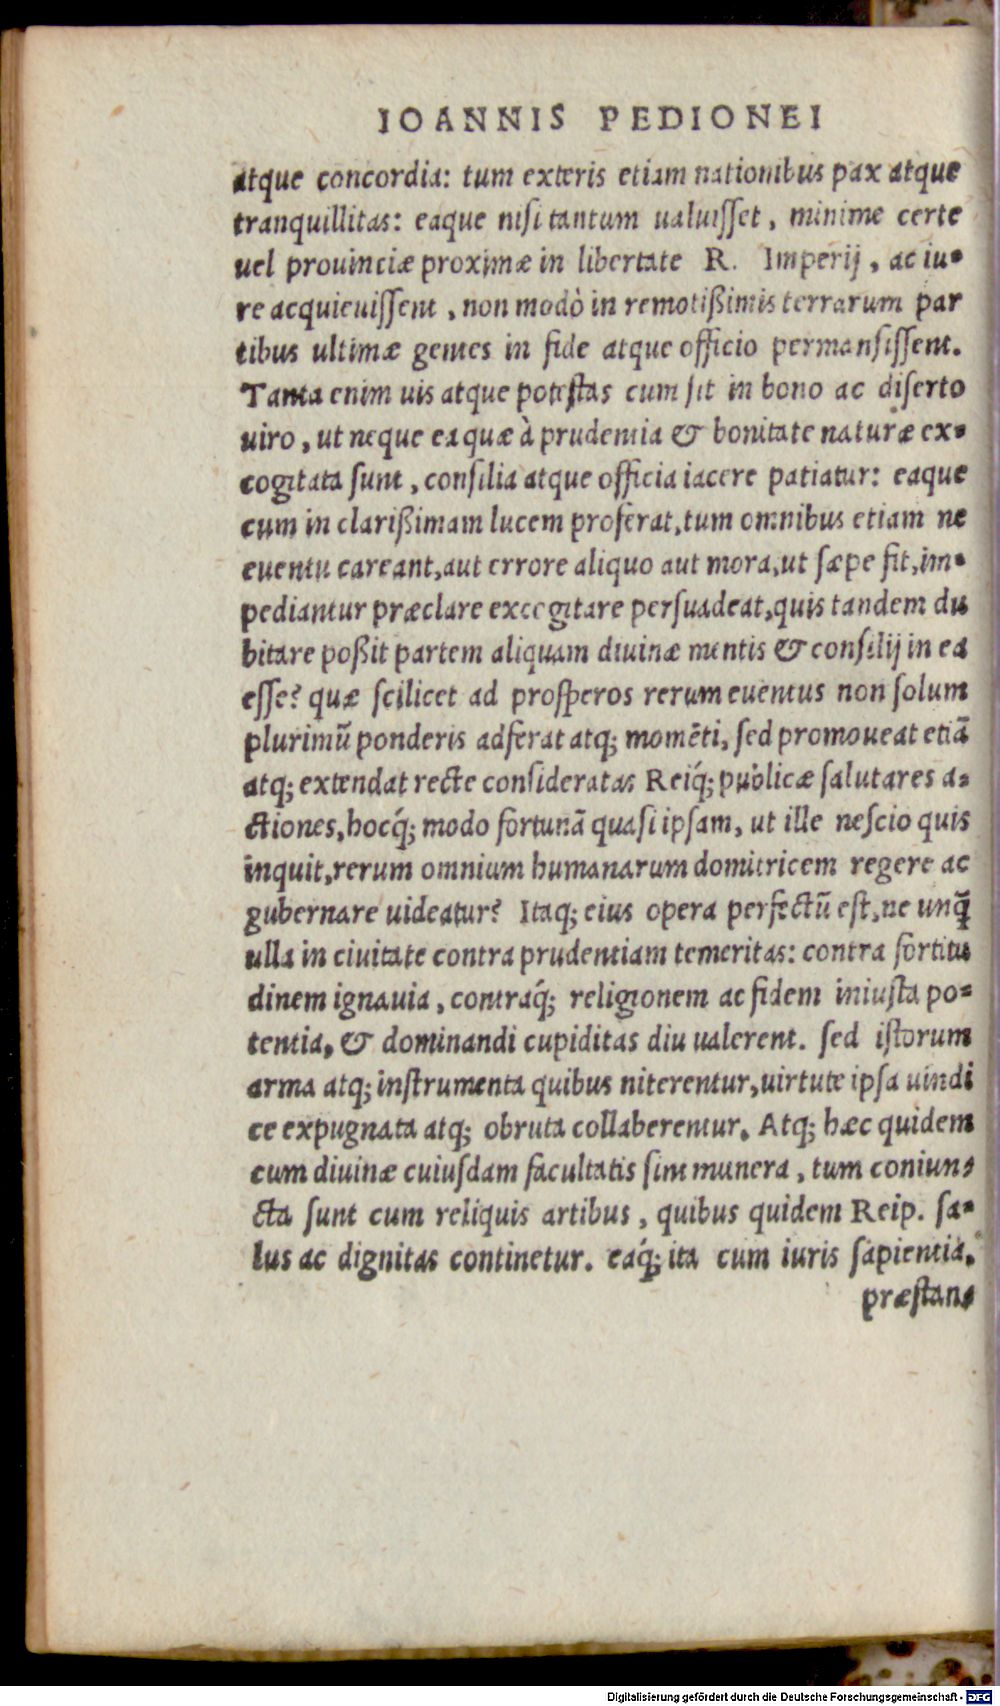 IOANNIS PEDIONEI
atque concordia: tum exteris etiam nationibus pax atque
tranquillitas: eaque nisi tantum ualuisset, minime certe
uel prouinciæ proximæ in libertate R. Imperij, ac iu-
re acquieuissent, non modò in remotißimis terrarum par
tibus ultimæ gentes in fide atque officio permansissent.
Tanta enim uis atque potestas cum sit in bono ac diserto
uiro, ut neque ea quæ à prudentia & bonitate naturæ ex-
cogitata sunt, consilia atque officia iacere patiatur: eaque
cum in clarißimam lucem proferat, tum omnibus etiam ne
euentu careant, aut errore aliquo aut mora, ut sæpe fit, im-
pediantur præclare excogitare persuadeat, quis tandem du
bitare poßit partem aliquam diuinæ mentis & consilij in ea
esse? quæ scilicet ad prosperos rerum euentus non solum
plurimũ ponderis adferat atq; momẽti, sed promoueat etiã
atq; extendat recte consideratas Reiq́; publicæ salutares a-
ctiones, hocq́; modo fortunã quasi ipsam, ut ille nescio quis
inquit, rerum omnium humanarum domitricem regere ac
gubernare uideatur? Itaq; eius opera perfectũ est, ne unq̃
ulla in ciuitate contra prudentiam temeritas: contra fortitu
dinem ignauia, contraq́; religionem ac fidem iniusta po-
tentia, & dominandi cupiditas diu ualerent. sed istorum
arma atq; instrumenta quibus niterentur, uirtute ipsa uindi
ce expugnata atq; obruta collaberentur. Atq; hæc quidem
cum diuinæ cuiusdam facultatis sint munera, tum coniun-
cta sunt cum reliquis artibus, quibus quidem Reip. sa-
lus ac dignitas continetur. eaq́; ita cum iuris sapientia,
præstan-
Digitalisierung gefördert durch die Deutsche Forschungsgemeinschaft - DFG